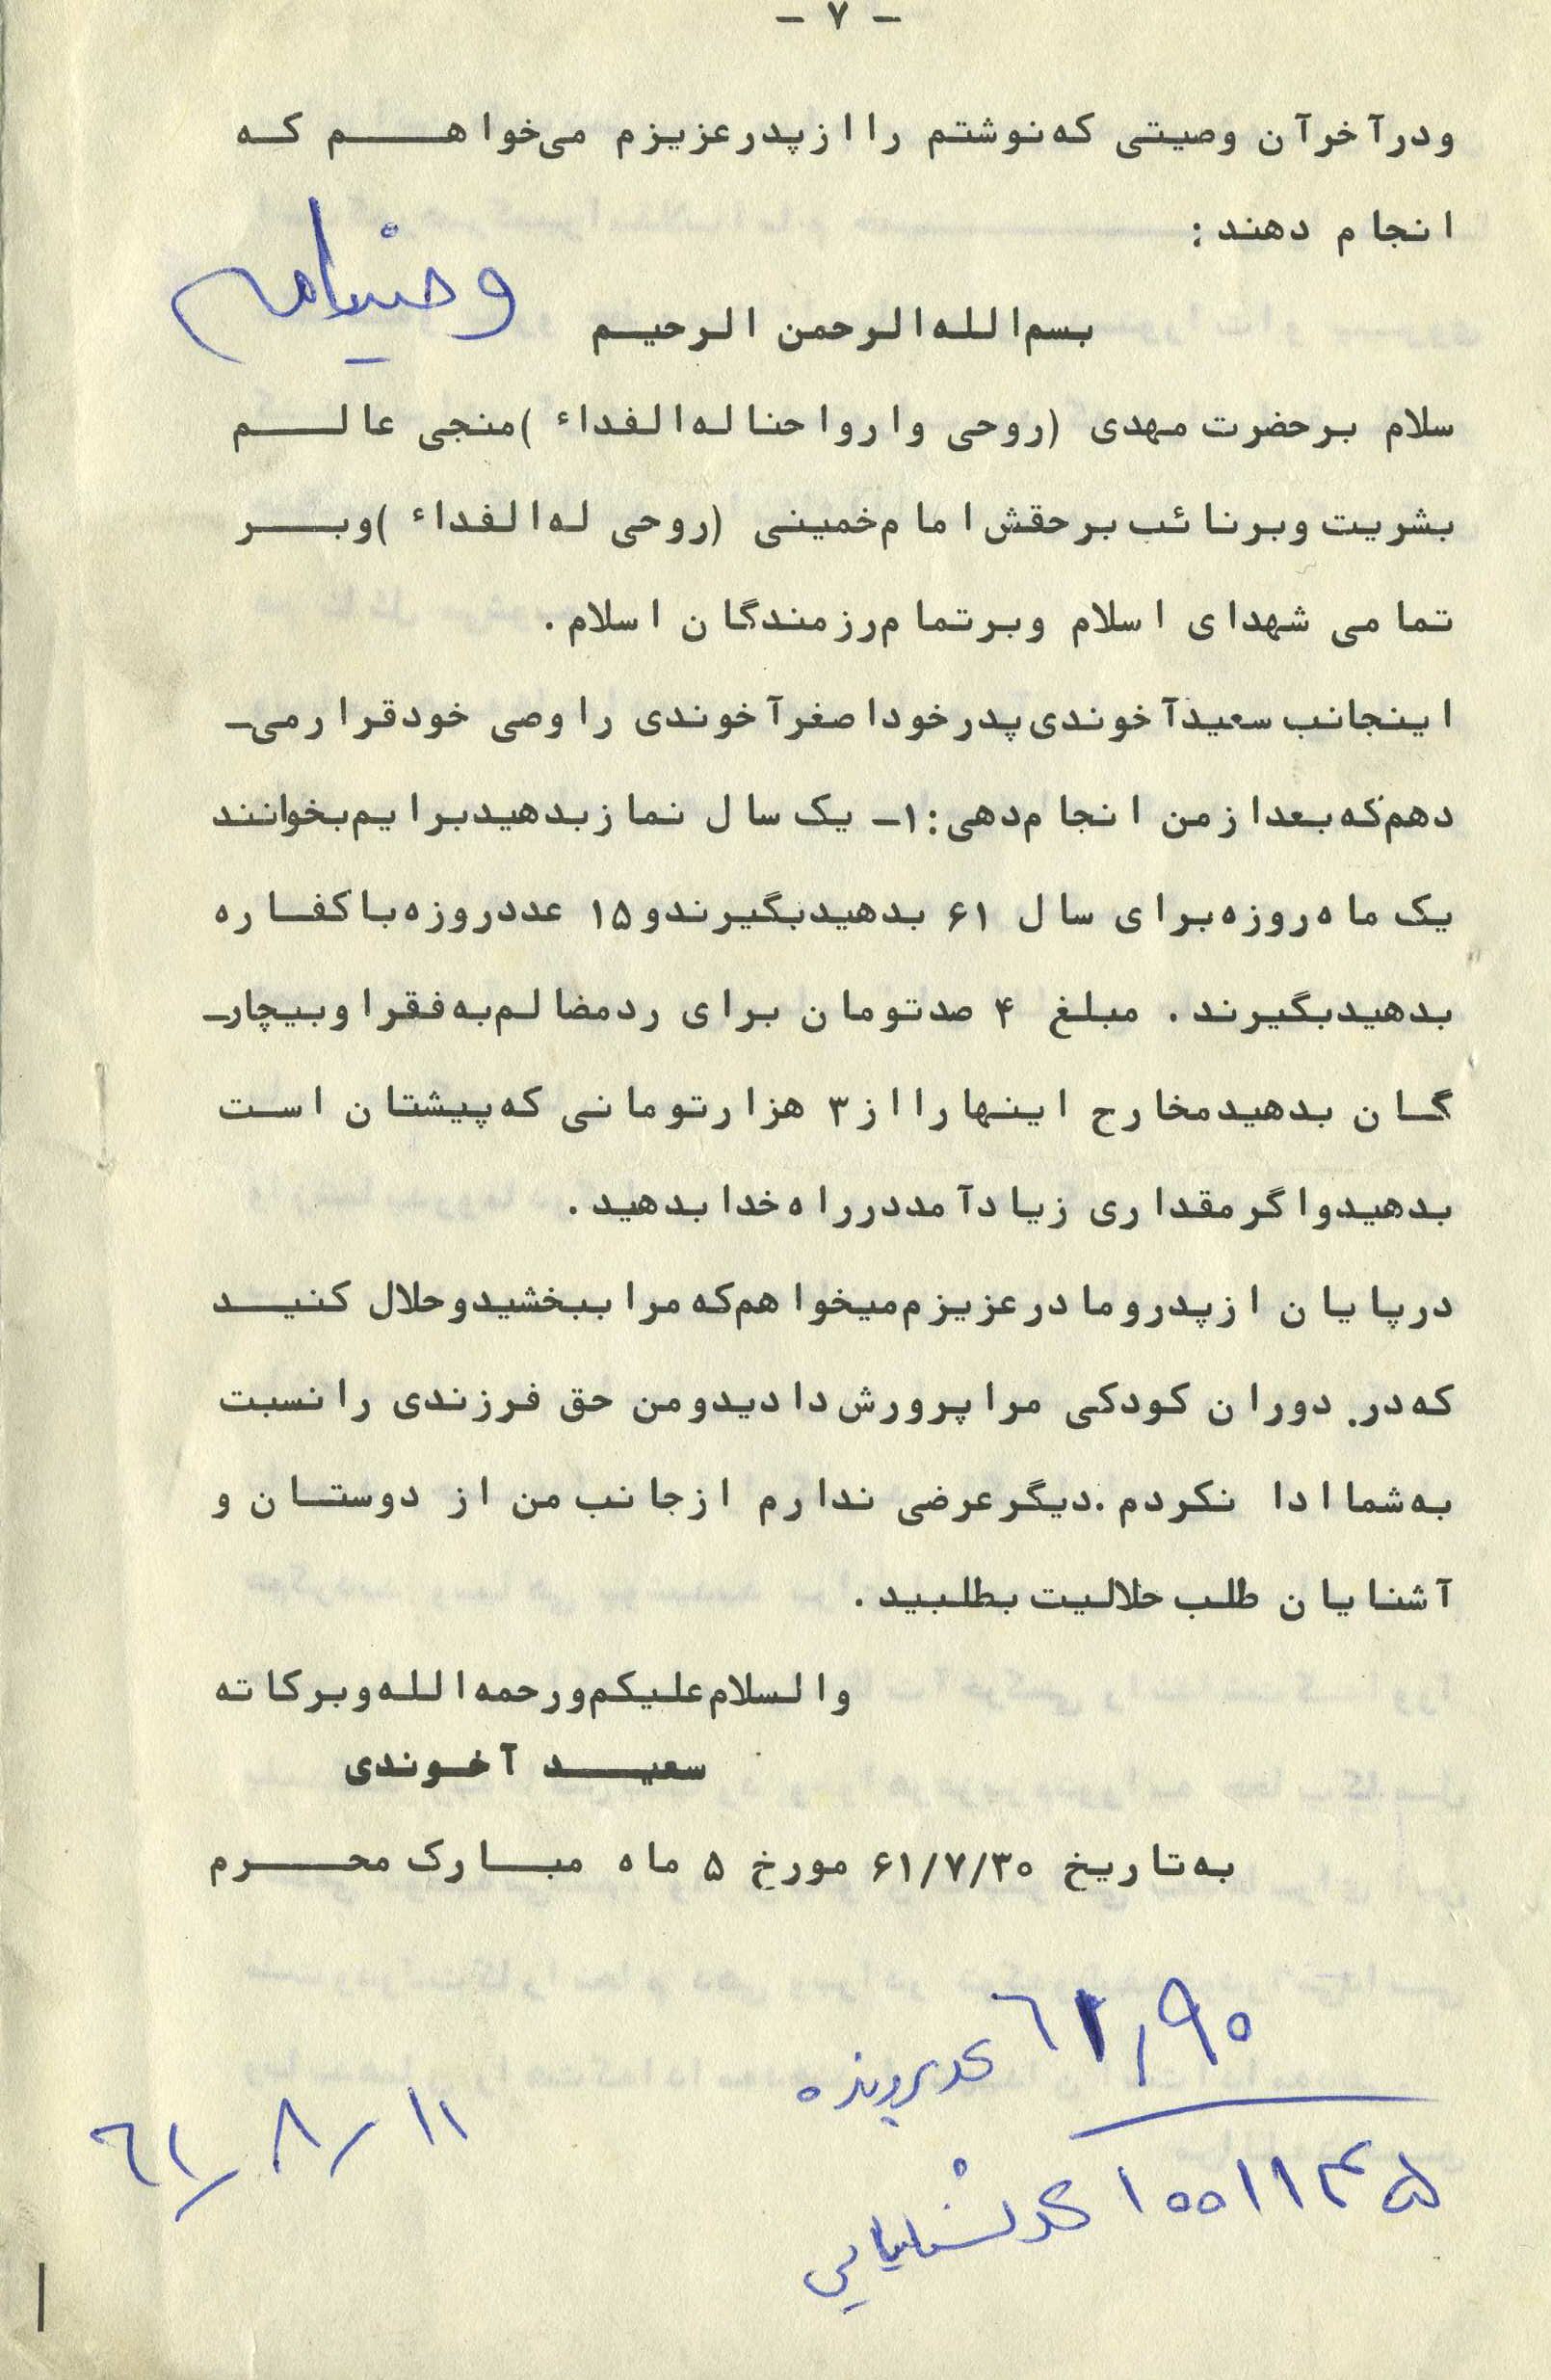 - ۷ -
ودرآخرآن وصیتی که نوشتم را از پدر عزیزم می‌خواهم که
انجام دهند:
وصیتنامه
بسم الله الرحمن الرحیم
سلام برحضرت مهدی (روحی وارواحنا له الفداء) منجی عالم
بشریت وبرنائب برحقش امام خمینی (روحی له الفداء) وبر
تمامی شهدای اسلام وبرتمام رزمندگان اسلام.
اینجانب سعیدآخوندی پدرخوداصغرآخوندی را وصی خودقرارمی-
دهم که بعدازمن انجام دهی: ۱- یک سال نمازبدهیدبرایم بخوانند
یک ماه روزه برای سال ۶۱ بدهیدبگیرندو ۱۵ عددروزه باکفاره
بدهیدبگیرند. مبلغ ۴ صدتومان برای ردمضالم به فقراوبیچار-
گان بدهیدمخارج اینهارااز ۳ هزارتومانی که پیشتان است
بدهیدواگرمقداری زیادآمددرراه خدابدهید.
درپایان ازپدرومادرعزیزم میخواهم که مراببخشیدوحلال کنید
که در. دوران کودکی مراپرورش دادیدومن حق فرزندی رانسبت
به شماادا نکردم. دیگرعرضی ندارم ازجانب من از دوستان و
آشنایان طلب حلالیت بطلبید.
والسلام علیکم ورحمه الله وبرکاته
سعید آخوندی
به تاریخ ۶۱/۷/۳۰ مورخ ۵ ماه مبارک محرم
کدپرونده
۱۰۰۱۱۴۵ کدشناسایی
۶۱/۸/۱۱